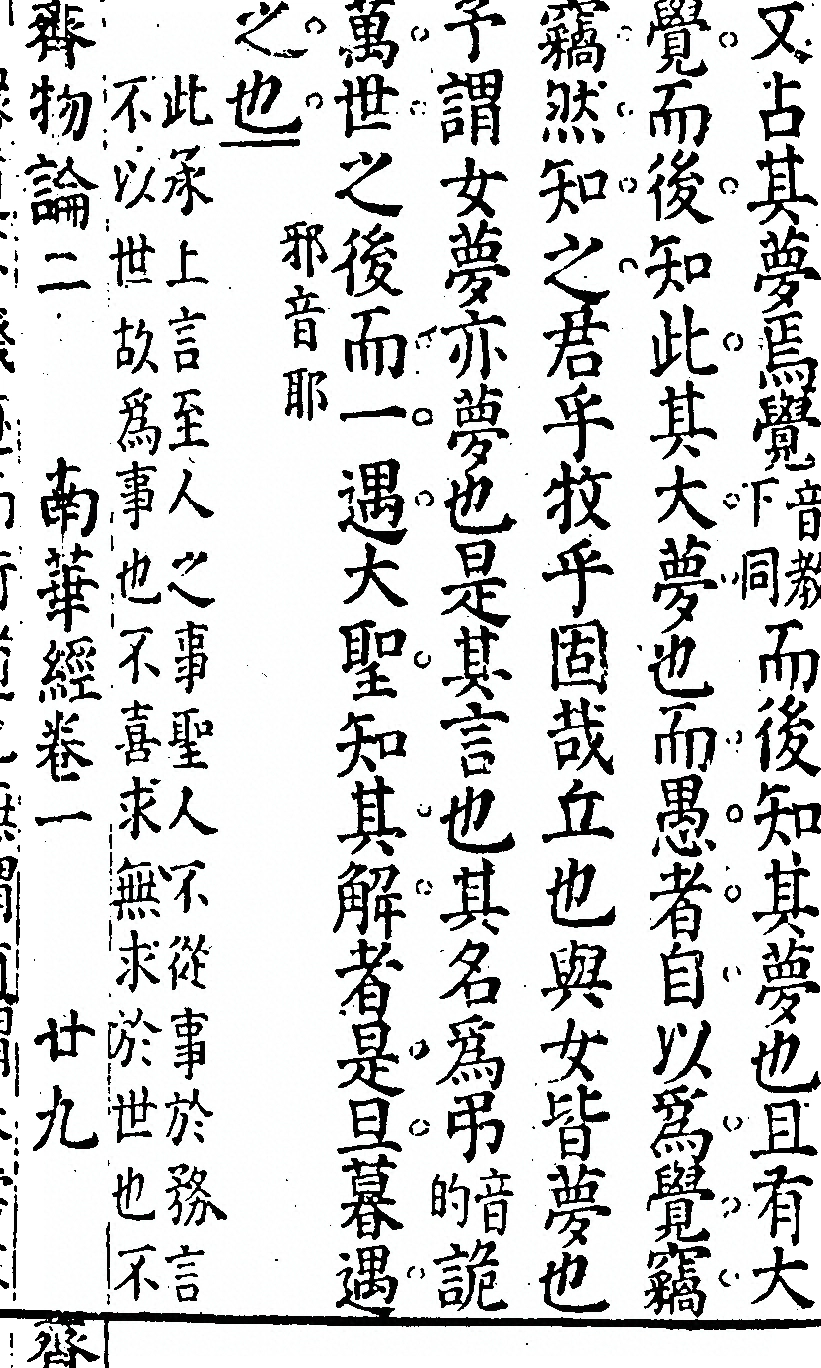 又占其夢焉覺音教下同而後知其夢也且有大
覺而後知此其大夢也而愚者自以為覺竊
竊然知之君乎牧乎固哉丘也與女皆夢也
予謂女夢亦夢也是其言也其名為弔音的詭
萬世之後而一遇大聖知其解者是旦暮遇
之也
邪音耶
此承上言至人之事聖人不從事於務言
不以世故為事也不喜求無求於世也不
齊物論二 南華經卷一 廿九
齊